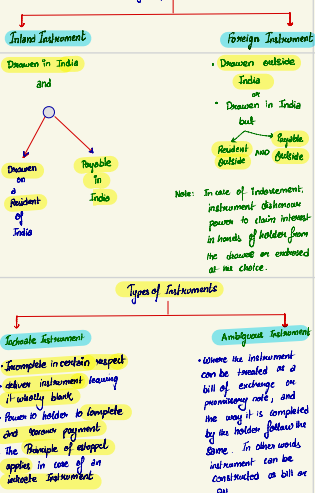 Inland Instrument
Drawen in India
and
Drawen
on
a
Resident
of
India
Payable
in
India
Foreign Instrument
• Drawen outside
India
or
• Drawen in India
but
Resident
Outside
AND
Payable
Outside
Note: In case of indorsement,
instrument dishonour
power to claim interest
in hands of holder from
the drawee or endorsed
at his choice.
Types of Instruments
Inchoate Instrument
• Incomplete in certain respect
• deliver instrument leaving
it wholly blank,
• Power to holder to complete
and recover payment
The Principle of estoppel
applies in case of an
inchoate Instrument
Ambiguous Instrument
• Where the instrument
can be treated as a
bill of exchange or
promissory note, and
the way it is completed
by the holder follow the
same. In other words
instrument can be
constructed as bill or